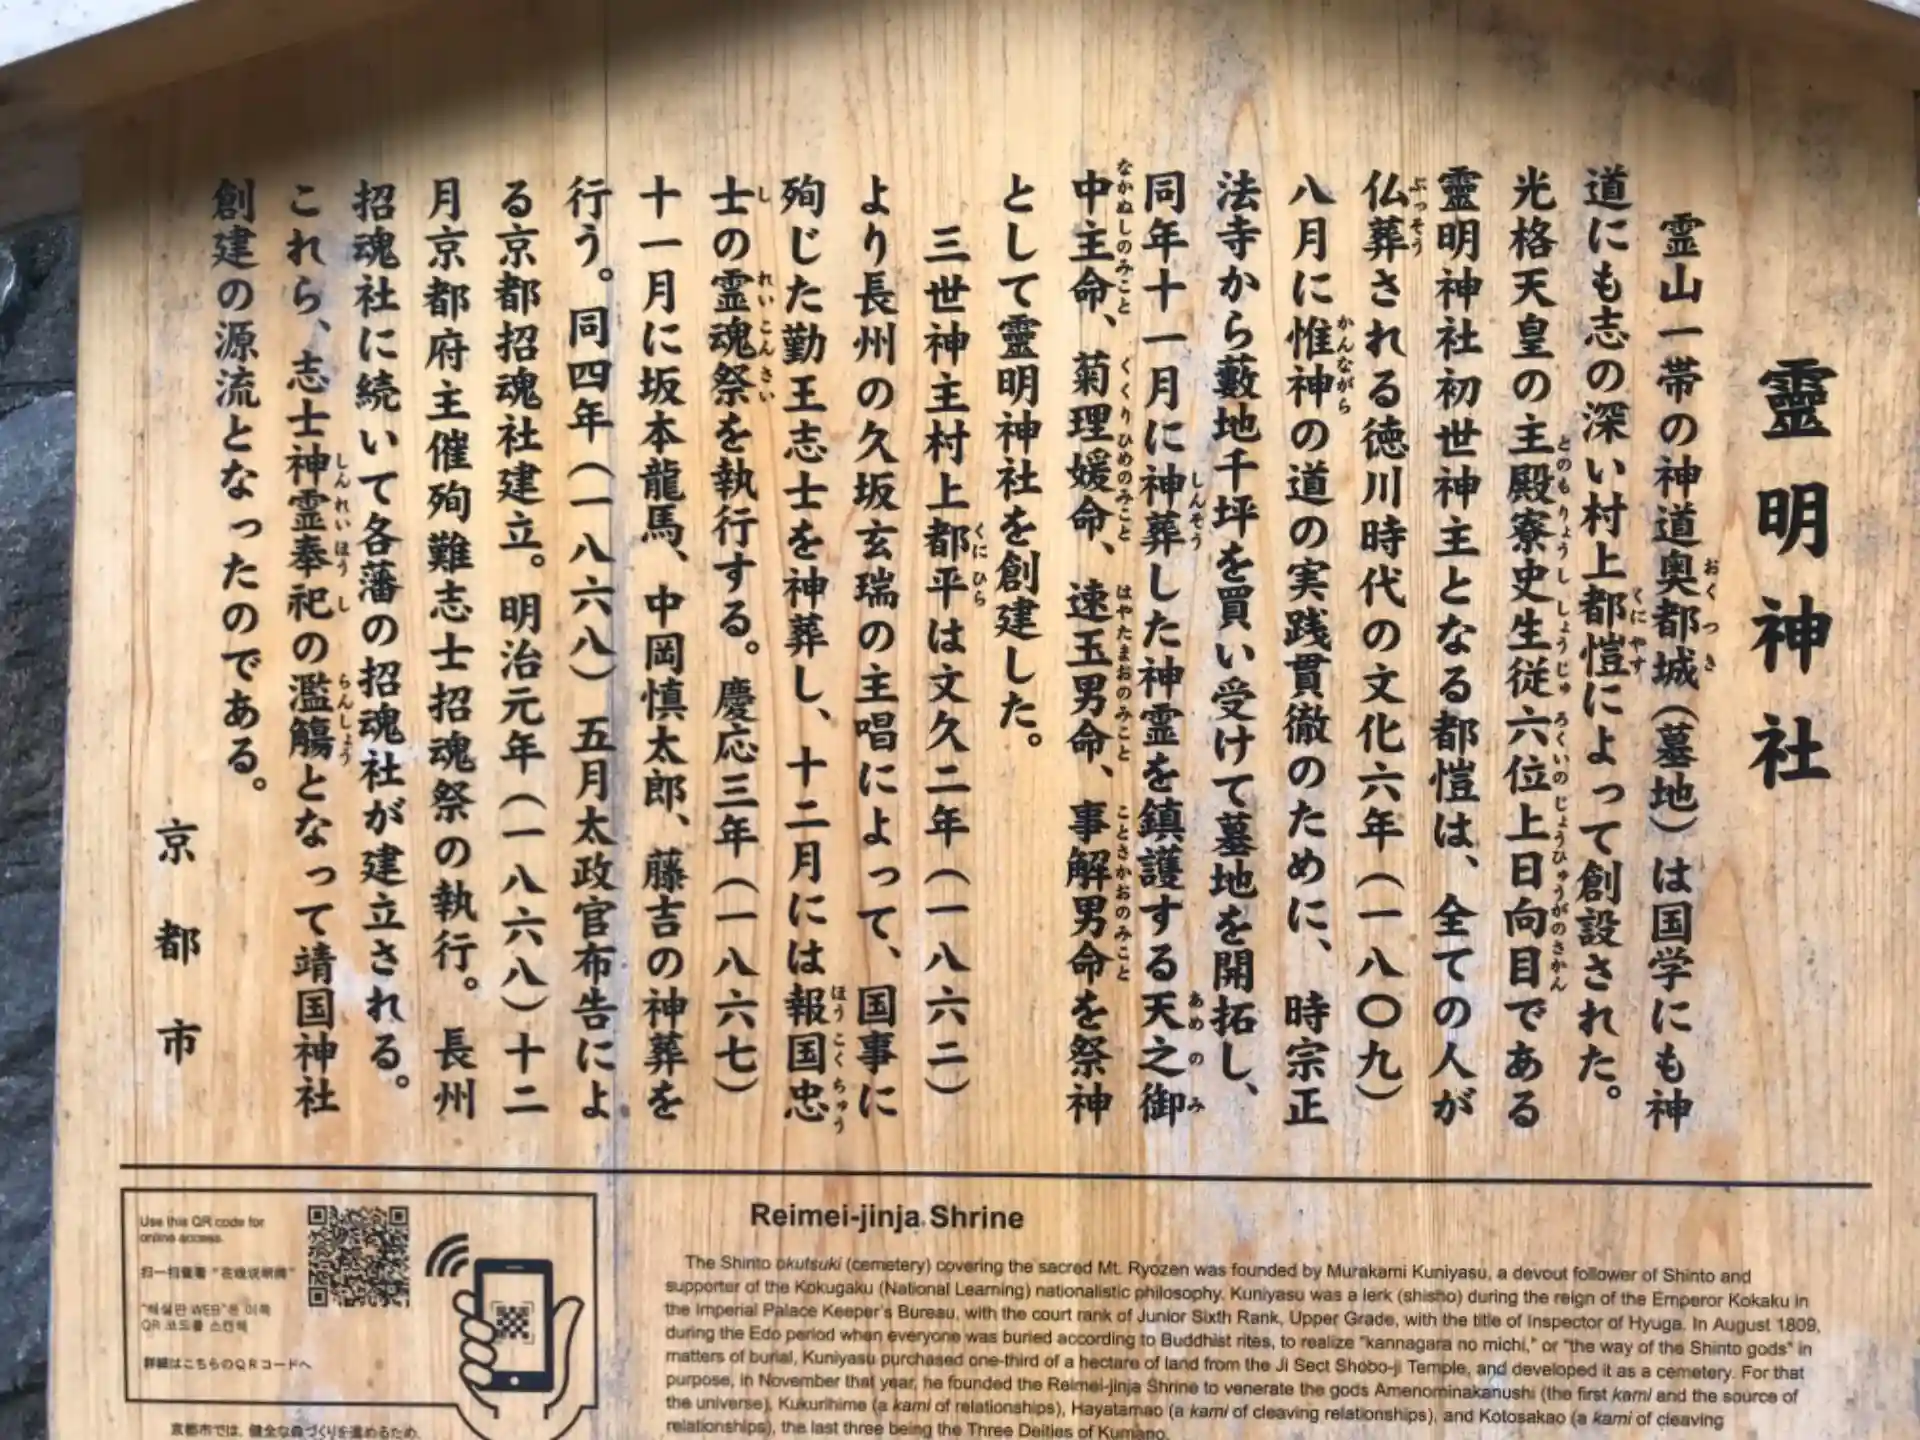 靈明神社
霊山一帯の神道奥都城（墓地）は国学にも神
道にも志の深い村上都愷によって創設された。
光格天皇の主殿寮史生従六位上日向目である
靈明神社初世神主となる都愷は、全ての人が
仏葬される徳川時代の文化六年（一八〇九）
八月に惟神の道の実践貫徹のために、時宗正
法寺から藪地千坪を買い受けて墓地を開拓し、
同年十一月に神葬した神霊を鎮護する天之御
中主命、菊理媛命、速玉男命、事解男命を祭神
として靈明神社を創建した。
三世神主村上都平は文久二年（一八六二）
より長州の久坂玄瑞の主唱によって、国事に
殉じた勤王志士を神葬し、十二月には報国忠
士の霊魂祭を執行する。慶応三年（一八六七）
十一月に坂本龍馬、中岡慎太郎、藤吉の神葬を
行う。同四年（一八六八）五月太政官布告によ
る京都招魂社建立。明治元年（一八六八）十二
月京都府主催殉難志士招魂祭の執行。長州
招魂社に続いて各藩の招魂社が建立される。
これら、志士神霊奉祀の濫觴となって靖国神社
創建の源流となったのである。
京都市
Use this QR code for
online access.
扫一扫查看 "在线说明牌"
"해설판 WEB"은 이쪽
QR 코드를 스캔해
詳細はこちらのQRコードへ
京都市では、健全な森づくりを進めるため、
Reimei-jinja Shrine
The Shinto okutsuki (cemetery) covering the sacred Mt. Ryozen was founded by Murakami Kuniyasu, a devout follower of Shinto and
supporter of the Kokugaku (National Learning) nationalistic philosophy. Kuniyasu was a lerk (shisho) during the reign of the Emperor Kokaku in
the Imperial Palace Keeper's Bureau, with the court rank of Junior Sixth Rank, Upper Grade, with the title of Inspector of Hyuga. In August 1809,
during the Edo period when everyone was buried according to Buddhist rites, to realize "kannagara no michi," or "the way of the Shinto gods" in
matters of burial, Kuniyasu purchased one-third of a hectare of land from the Ji Sect Shobo-ji Temple, and developed it as a cemetery. For that
purpose, in November that year, he founded the Reimei-jinja Shrine to venerate the gods Amenominakanushi (the first kami and the source of
the universe), Kukurihime (a kami of relationships), Hayatamao (a kami of cleaving relationships), and Kotosakao (a kami of cleaving
relationships), the last three being the Three Deities of Kumano.